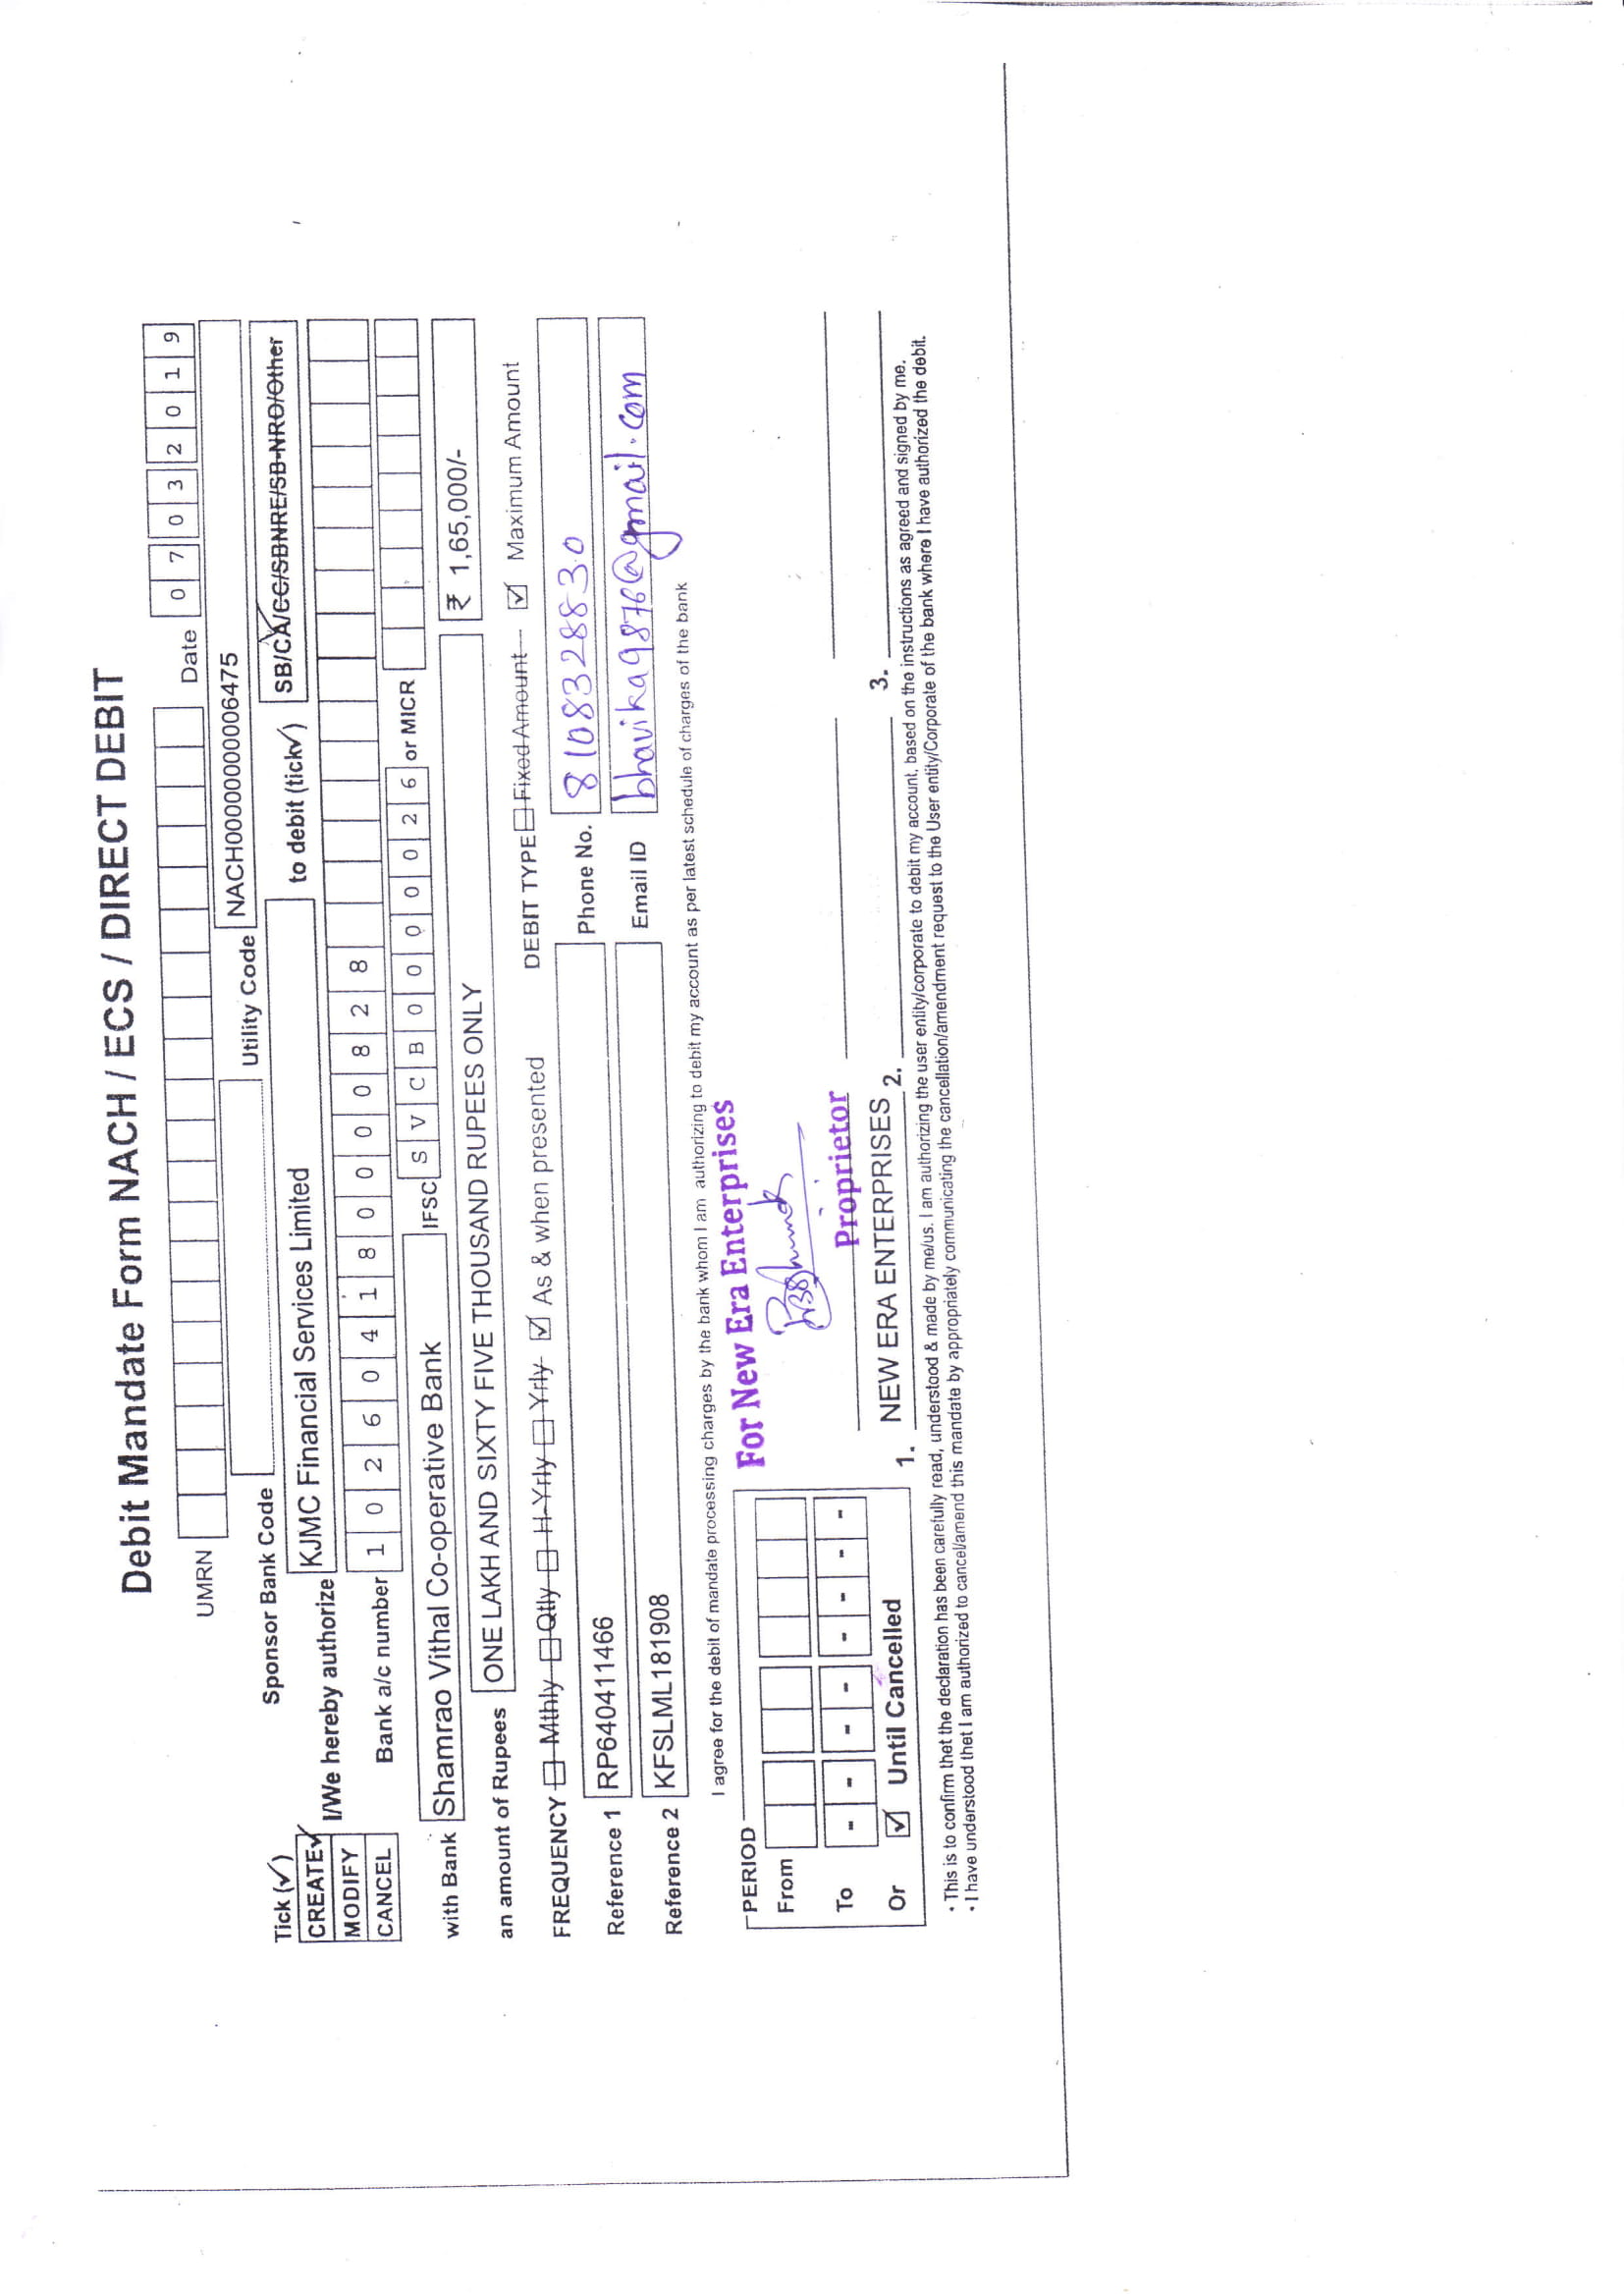 Debit Mandate Form NACH / ECS / DIRECT DEBIT
UMRN Date 0 7 0 3 2 0 1 9
Sponsor Bank Code Utility Code NACH00000000006475
Tick (✓)
CREATE✓ I/We hereby authorize KJMC Financial Services Limited to debit (tick✓) SB/CA/CC/SBNRE/SB-NRO/Other
MODIFY
CANCEL Bank a/c number 1 0 2 6 0 4 1 8 0 0 0 0 8 2 8
with Bank Shamrao Vithal Co-operative Bank IFSC S V C B 0 0 0 0 0 2 6 or MICR
an amount of Rupees ONE LAKH AND SIXTY FIVE THOUSAND RUPEES ONLY ₹ 1,65,000/-
FREQUENCY ☐ Mthly ☐ Qtly ☐ H-Yrly ☐ Yrly ☑ As & when presented DEBIT TYPE ☐ Fixed Amount ☑ Maximum Amount
Reference 1 RP640411466 Phone No. 8108328830
Reference 2 KFSLML181908 Email ID bhavika9876@gmail.com
I agree for the debit of mandate processing charges by the bank whom I am authorizing to debit my account as per latest schedule of charges of the bank
PERIOD
For New Era Enterprises
From
To - - - - - - - -
Proprietor
Or ☑ Until Cancelled
1. NEW ERA ENTERPRISES 2. 3.
· This is to confirm thet the declaration has been carefully read, understood & made by me/us. I am authorizing the user entity/corporate to debit my account, based on the instructions as agreed and signed by me.
· I have understood thet I am authorized to cancel/amend this mandate by appropriately communicating the cancellation/amendment request to the User entity/Corporate of the bank where I have authorized the debit.